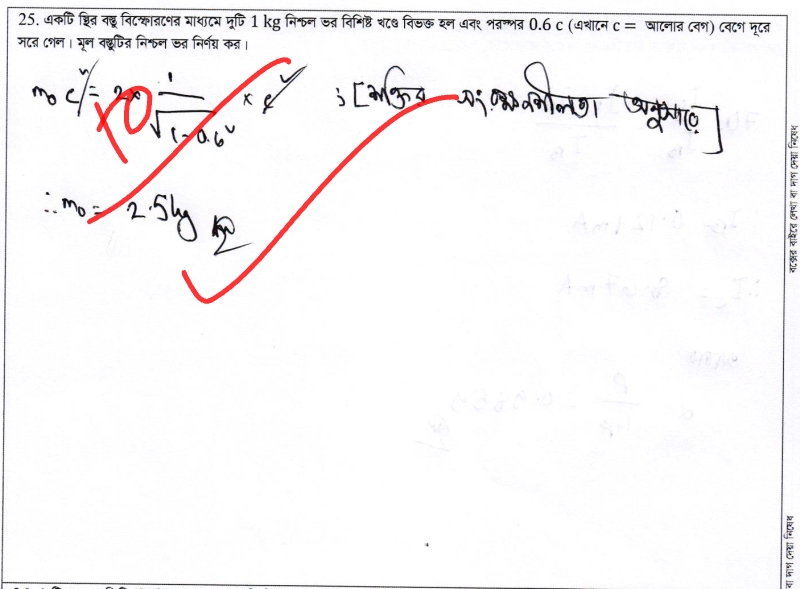 25. একটি স্থির বস্তু বিস্ফোরণের মাধ্যমে দুটি 1 kg নিশ্চল ভর বিশিষ্ট খণ্ডে বিভক্ত হল এবং পরস্পর 0.6 c (এখানে c = আলোর বেগ) বেগে দূরে
সরে গেল। মূল বস্তুটির নিশ্চল ভর নির্ণয় কর।
m₀ c² = 2 × 1/√(1-0.6²) × c² ; [শক্তির সংরক্ষণশীলতা অনুসারে]
10
∴ m₀ = 2.5 kg
বক্সের বাইরে লেখা বা দাগ দেয়া নিষেধ
বা দাগ দেয়া নিষেধ